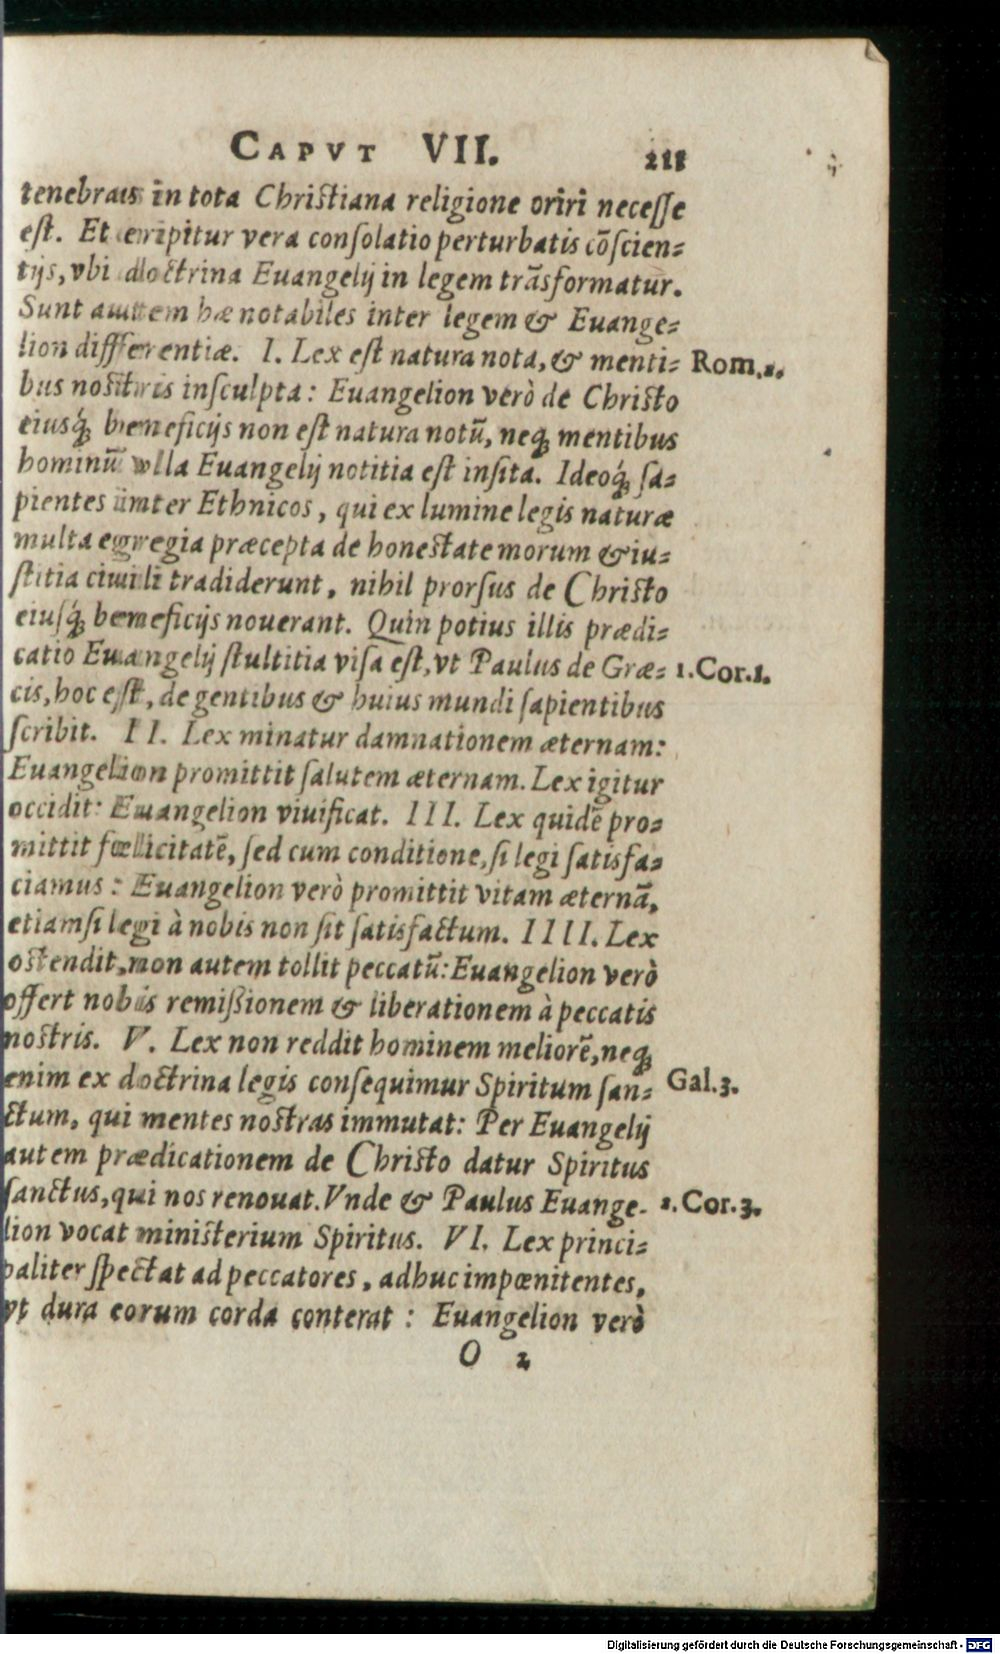 CAPVT VII. 211
tenebras in tota Christiana religione oriri necesse
est. Et eripitur vera consolatio perturbatis cõscien-
tijs, vbi doctrina Euangelij in legem trãsformatur.
Sunt autem hæ notabiles inter legem & Euange-
lion differentiæ. I. Lex est natura nota, & menti- Rom.2.
bus nostris insculpta: Euangelion verò de Christo
eiusq́; beneficijs non est natura notũ, neq; mentibus
hominũ vlla Euangelij notitia est insita. Ideoq́; sa-
pientes inter Ethnicos, qui ex lumine legis naturæ
multa egregia præcepta de honestate morum & iu-
stitia ciuili tradiderunt, nihil prorsus de Christo
eiusq́; beneficijs nouerant. Quin potius illis prædi-
catio Euangelij stultitia visa est, vt Paulus de Græ- 1.Cor.1.
cis, hoc est, de gentibus & huius mundi sapientibus
scribit. II. Lex minatur damnationem æternam:
Euangelion promittit salutem æternam. Lex igitur
occidit: Euangelion viuificat. III. Lex quidẽ pro-
mittit fœlicitatẽ, sed cum conditione, si legi satisfa-
ciamus: Euangelion verò promittit vitam æternã,
etiamsi legi à nobis non sit satisfactum. IIII. Lex
ostendit, non autem tollit peccatũ: Euangelion verò
offert nobis remißionem & liberationem à peccatis
nostris. V. Lex non reddit hominem meliorẽ, neq;
enim ex doctrina legis consequimur Spiritum san- Gal.3.
ctum, qui mentes nostras immutat: Per Euangelij
autem prædicationem de Christo datur Spiritus
sanctus, qui nos renouat. Vnde & Paulus Euange- 2.Cor.3.
lion vocat ministerium Spiritus. VI. Lex princi-
paliter spectat ad peccatores, adhuc impœnitentes,
vt dura eorum corda conterat: Euangelion verò
O 2
Digitalisierung gefördert durch die Deutsche Forschungsgemeinschaft - DFG